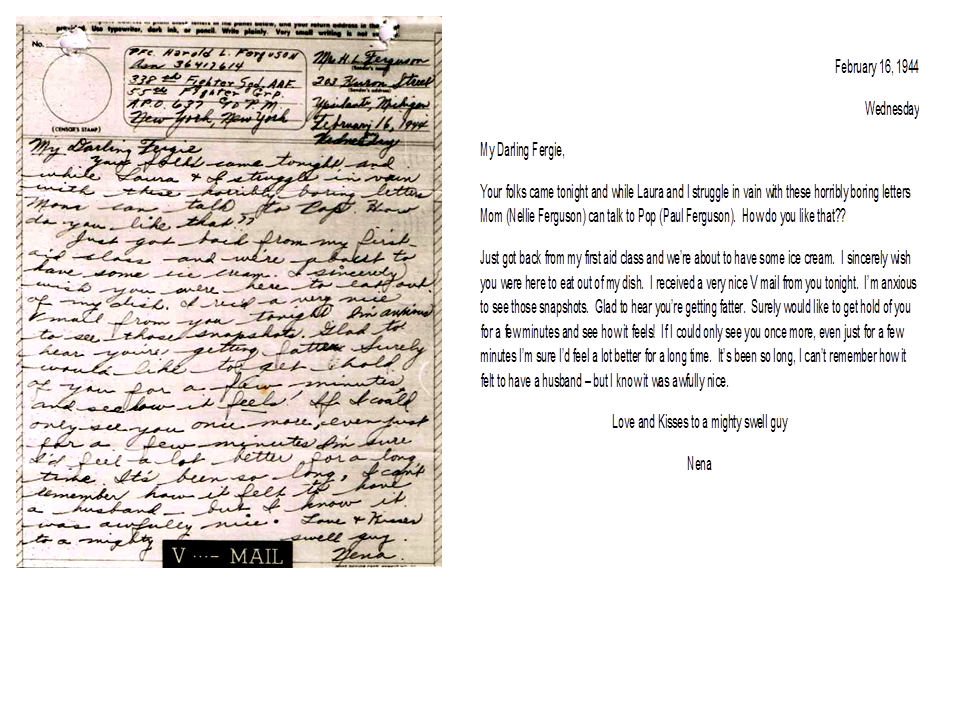 provided. Use typewriter, dark ink, or pencil. Write plainly. Very small writing is not
No.
(CENSOR'S STAMP)
Pfc. Harold L. Ferguson
Asn 36412614
338th Fighter Sqd. AAF
55th Fighter Grp.
A.P.O. 637 % P.M.
New York, New York
Mrs. H. L. Ferguson
(Sender's name)
203 Huron Street
(Sender's address)
Ypsilanti, Michigan
February 16, 1944
Wednesday
My Darling Fergie
Your folks came tonight and
while Laura & I struggle in vain
with these horribly boring letters
Mom can talk to Pop. How
do you like that??
Just got back from my first
aid class and we're about to
have some ice cream. I sincerely
wish you were here to eat out
of my dish. I rec'd a very nice
Vmail from you tonight. I'm anxious
to see those snapshots. Glad to
hear you're getting fatter. Surely
would like to get hold
of you for a few minutes
and see how it feels! If I could
only see you once more, even just
for a few minutes I'm sure
I'd feel a lot better for a long
time. It's been so long, I can't
remember how it felt to have
a husband – but I know it
was awfully nice. Love & Kisses
to a mighty swell guy.
Nena.
V ···– MAIL
February 16, 1944
Wednesday
My Darling Fergie,
Your folks came tonight and while Laura and I struggle in vain with these horribly boring letters
Mom (Nellie Ferguson) can talk to Pop (Paul Ferguson). How do you like that??
Just got back from my first aid class and we're about to have some ice cream. I sincerely wish
you were here to eat out of my dish. I received a very nice V mail from you tonight. I'm anxious
to see those snapshots. Glad to hear you're getting fatter. Surely would like to get hold of you
for a few minutes and see how it feels! If I could only see you once more, even just for a few
minutes I'm sure I'd feel a lot better for a long time. It's been so long, I can't remember how it
felt to have a husband – but I know it was awfully nice.
Love and Kisses to a mighty swell guy
Nena